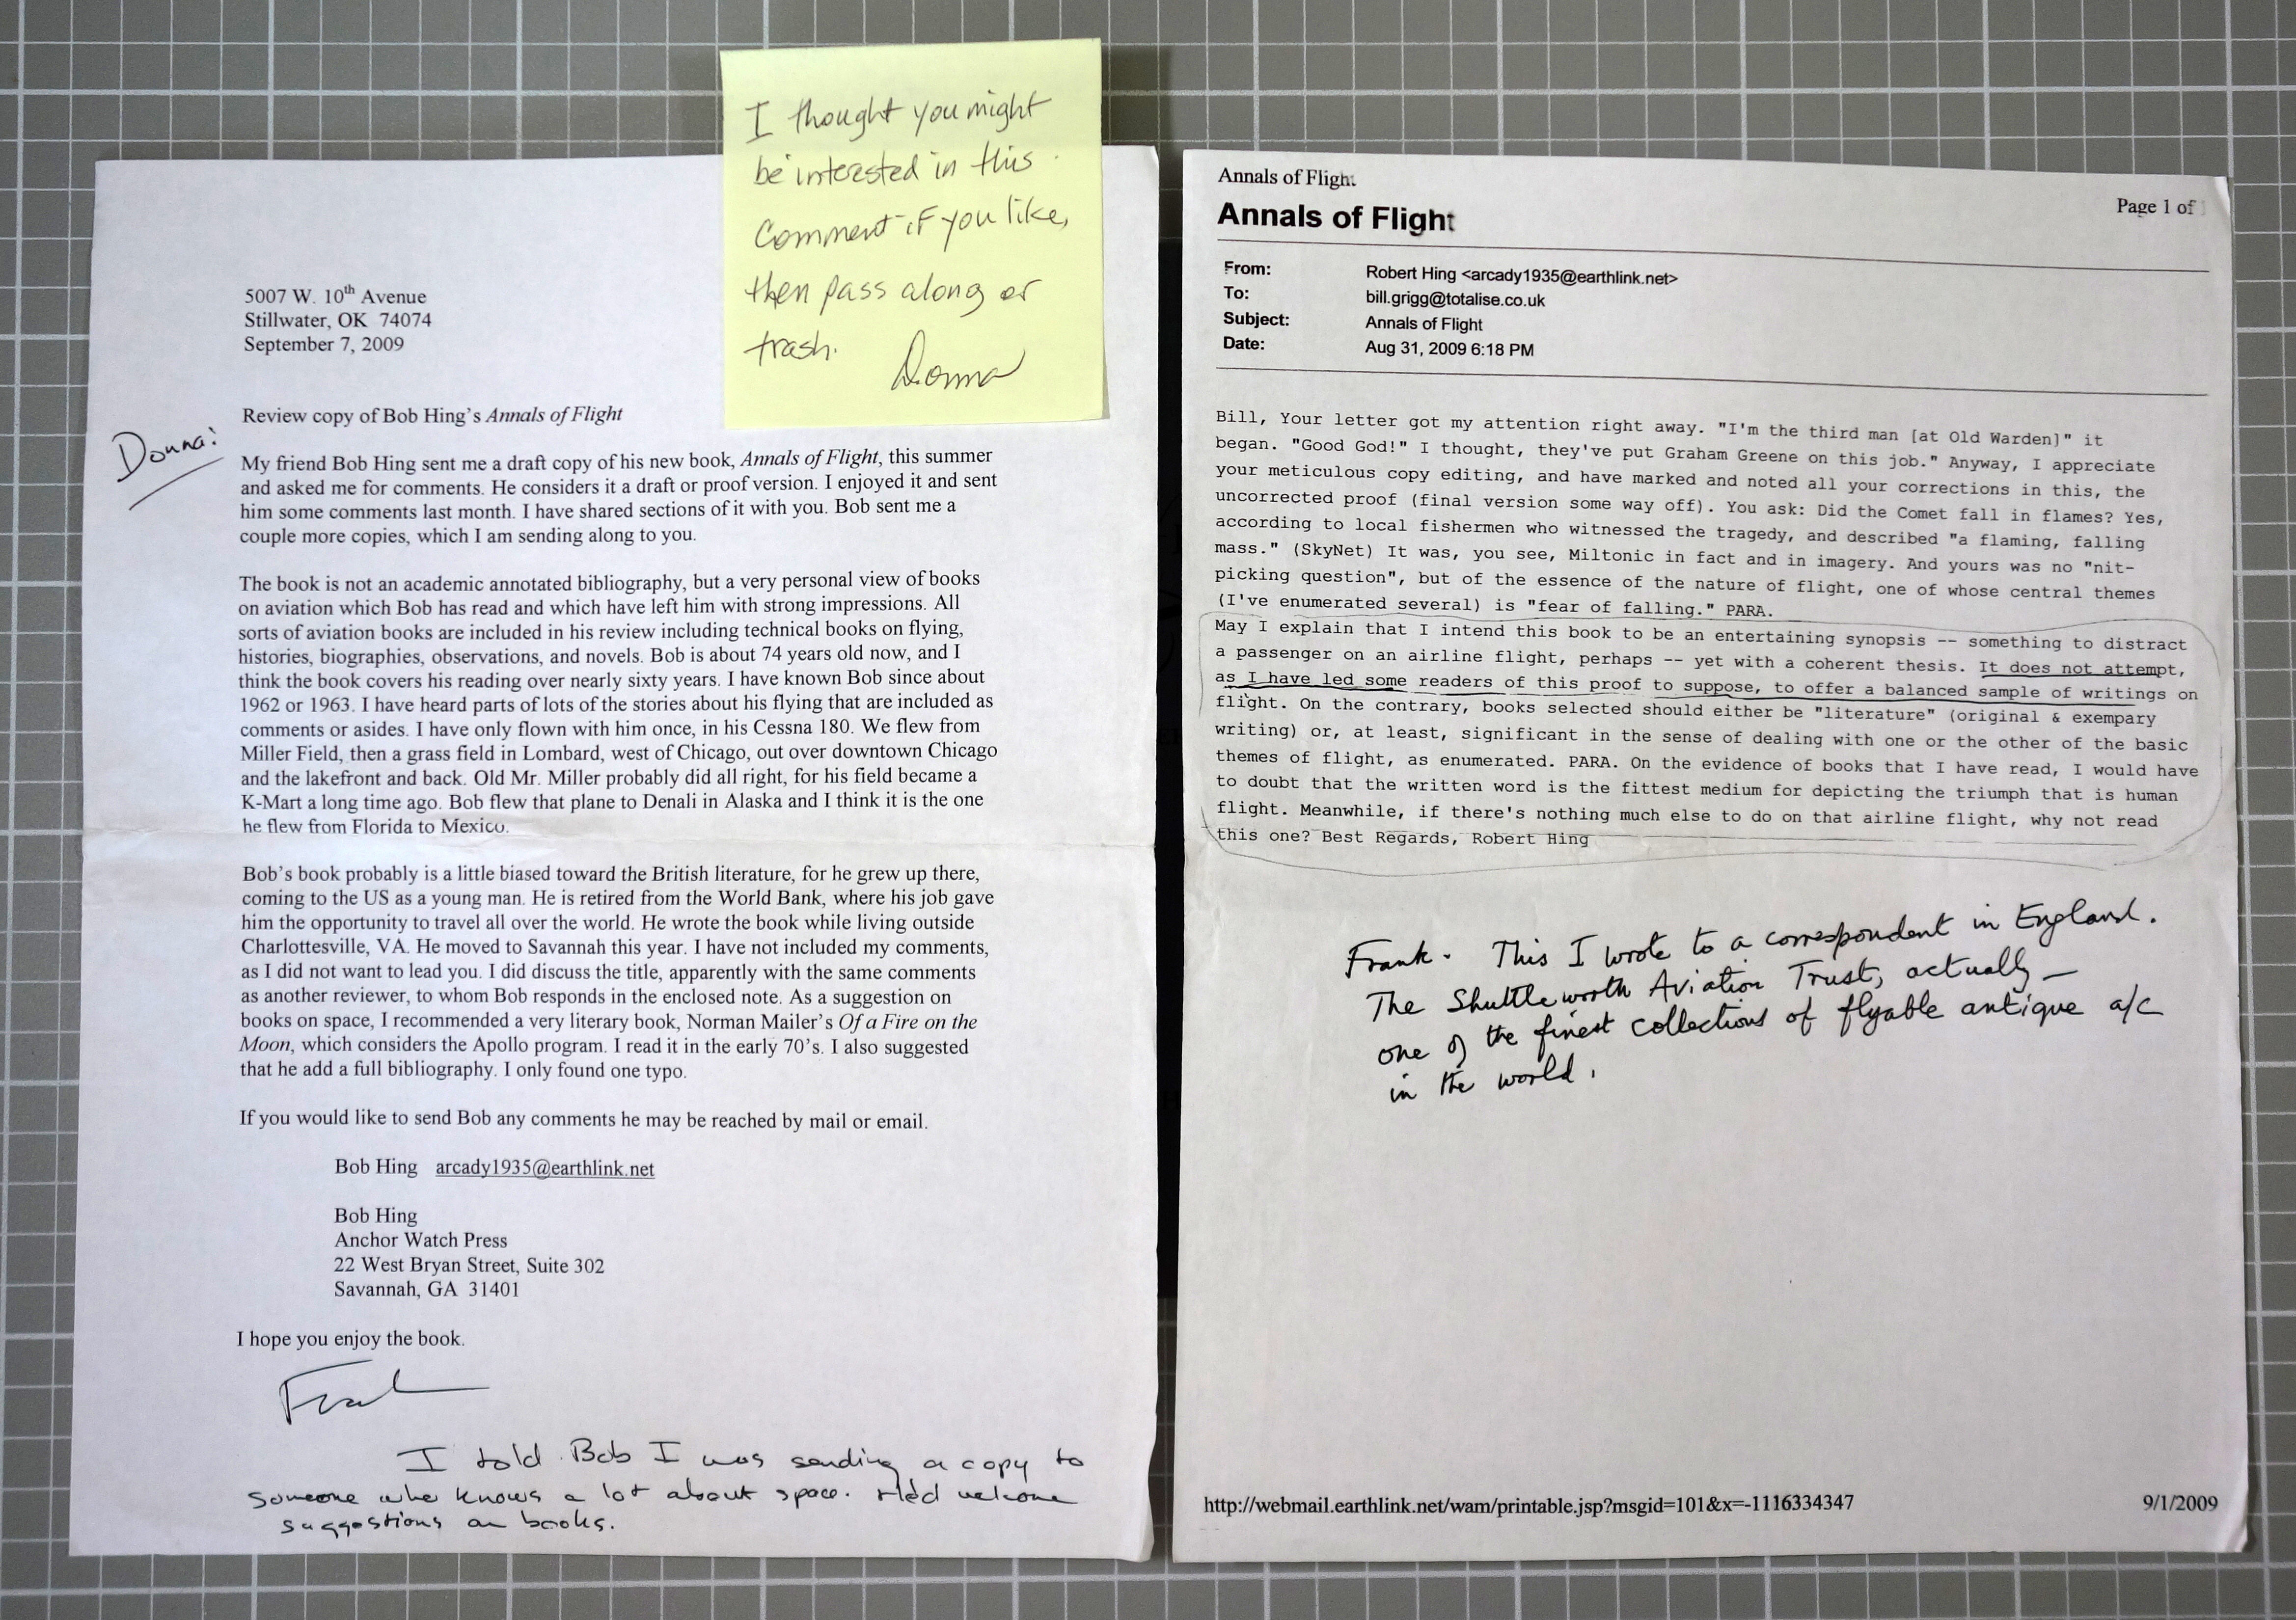 I thought you might
be interested in this.
Comment if you like,
then pass along or
trash.
Donna
5007 W. 10th Avenue
Stillwater, OK 74074
September 7, 2009
Review copy of Bob Hing's Annals of Flight
Donna:
My friend Bob Hing sent me a draft copy of his new book, Annals of Flight, this summer
and asked me for comments. He considers it a draft or proof version. I enjoyed it and sent
him some comments last month. I have shared sections of it with you. Bob sent me a
couple more copies, which I am sending along to you.
The book is not an academic annotated bibliography, but a very personal view of books
on aviation which Bob has read and which have left him with strong impressions. All
sorts of aviation books are included in his review including technical books on flying,
histories, biographies, observations, and novels. Bob is about 74 years old now, and I
think the book covers his reading over nearly sixty years. I have known Bob since about
1962 or 1963. I have heard parts of lots of the stories about his flying that are included as
comments or asides. I have only flown with him once, in his Cessna 180. We flew from
Miller Field, then a grass field in Lombard, west of Chicago, out over downtown Chicago
and the lakefront and back. Old Mr. Miller probably did all right, for his field became a
K-Mart a long time ago. Bob flew that plane to Denali in Alaska and I think it is the one
he flew from Florida to Mexico.
Bob's book probably is a little biased toward the British literature, for he grew up there,
coming to the US as a young man. He is retired from the World Bank, where his job gave
him the opportunity to travel all over the world. He wrote the book while living outside
Charlottesville, VA. He moved to Savannah this year. I have not included my comments,
as I did not want to lead you. I did discuss the title, apparently with the same comments
as another reviewer, to whom Bob responds in the enclosed note. As a suggestion on
books on space, I recommended a very literary book, Norman Mailer's Of a Fire on the
Moon, which considers the Apollo program. I read it in the early 70's. I also suggested
that he add a full bibliography. I only found one typo.
If you would like to send Bob any comments he may be reached by mail or email.
Bob Hing arcady1935@earthlink.net
Bob Hing
Anchor Watch Press
22 West Bryan Street, Suite 302
Savannah, GA 31401
I hope you enjoy the book.
Frank
I told Bob I was sending a copy to
someone who knows a lot about space. He'd welcome
suggestions on books.
Annals of Flight
Page 1 of
Annals of Flight
From: Robert Hing <arcady1935@earthlink.net>
To: bill.grigg@totalise.co.uk
Subject: Annals of Flight
Date: Aug 31, 2009 6:18 PM
Bill, Your letter got my attention right away. "I'm the third man [at Old Warden]" it
began. "Good God!" I thought, they've put Graham Greene on this job." Anyway, I appreciate
your meticulous copy editing, and have marked and noted all your corrections in this, the
uncorrected proof (final version some way off). You ask: Did the Comet fall in flames? Yes,
according to local fishermen who witnessed the tragedy, and described "a flaming, falling
mass." (SkyNet) It was, you see, Miltonic in fact and in imagery. And yours was no "nit-
picking question", but of the essence of the nature of flight, one of whose central themes
(I've enumerated several) is "fear of falling." PARA.
May I explain that I intend this book to be an entertaining synopsis -- something to distract
a passenger on an airline flight, perhaps -- yet with a coherent thesis. It does not attempt,
as I have led some readers of this proof to suppose, to offer a balanced sample of writings on
flight. On the contrary, books selected should either be "literature" (original & exempary
writing) or, at least, significant in the sense of dealing with one or the other of the basic
themes of flight, as enumerated. PARA. On the evidence of books that I have read, I would have
to doubt that the written word is the fittest medium for depicting the triumph that is human
flight. Meanwhile, if there's nothing much else to do on that airline flight, why not read
this one? Best Regards, Robert Hing
Frank. This I wrote to a correspondent in England.
The Shuttleworth Aviation Trust, actually —
one of the finest collections of flyable antique a/c
in the world.
http://webmail.earthlink.net/wam/printable.jsp?msgid=101&x=-1116334347
9/1/2009